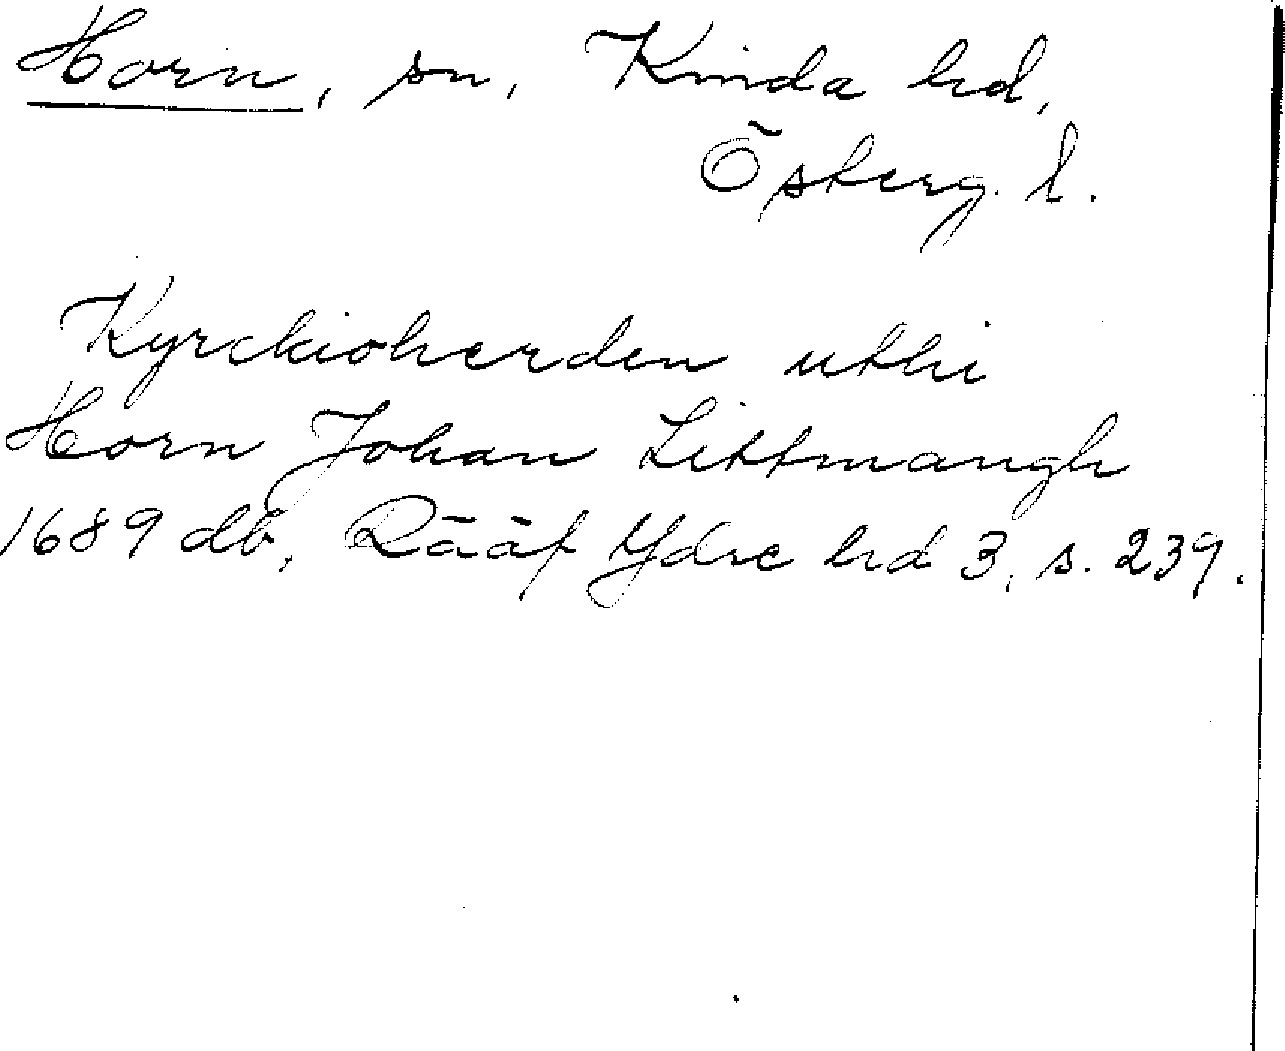 Horn, sn, Kinda hrd,
Östergl.
Kyrckioherden uthi
Horn Johan Littmangh
1689 db. Rääf Ydre hrd 3, s. 239.